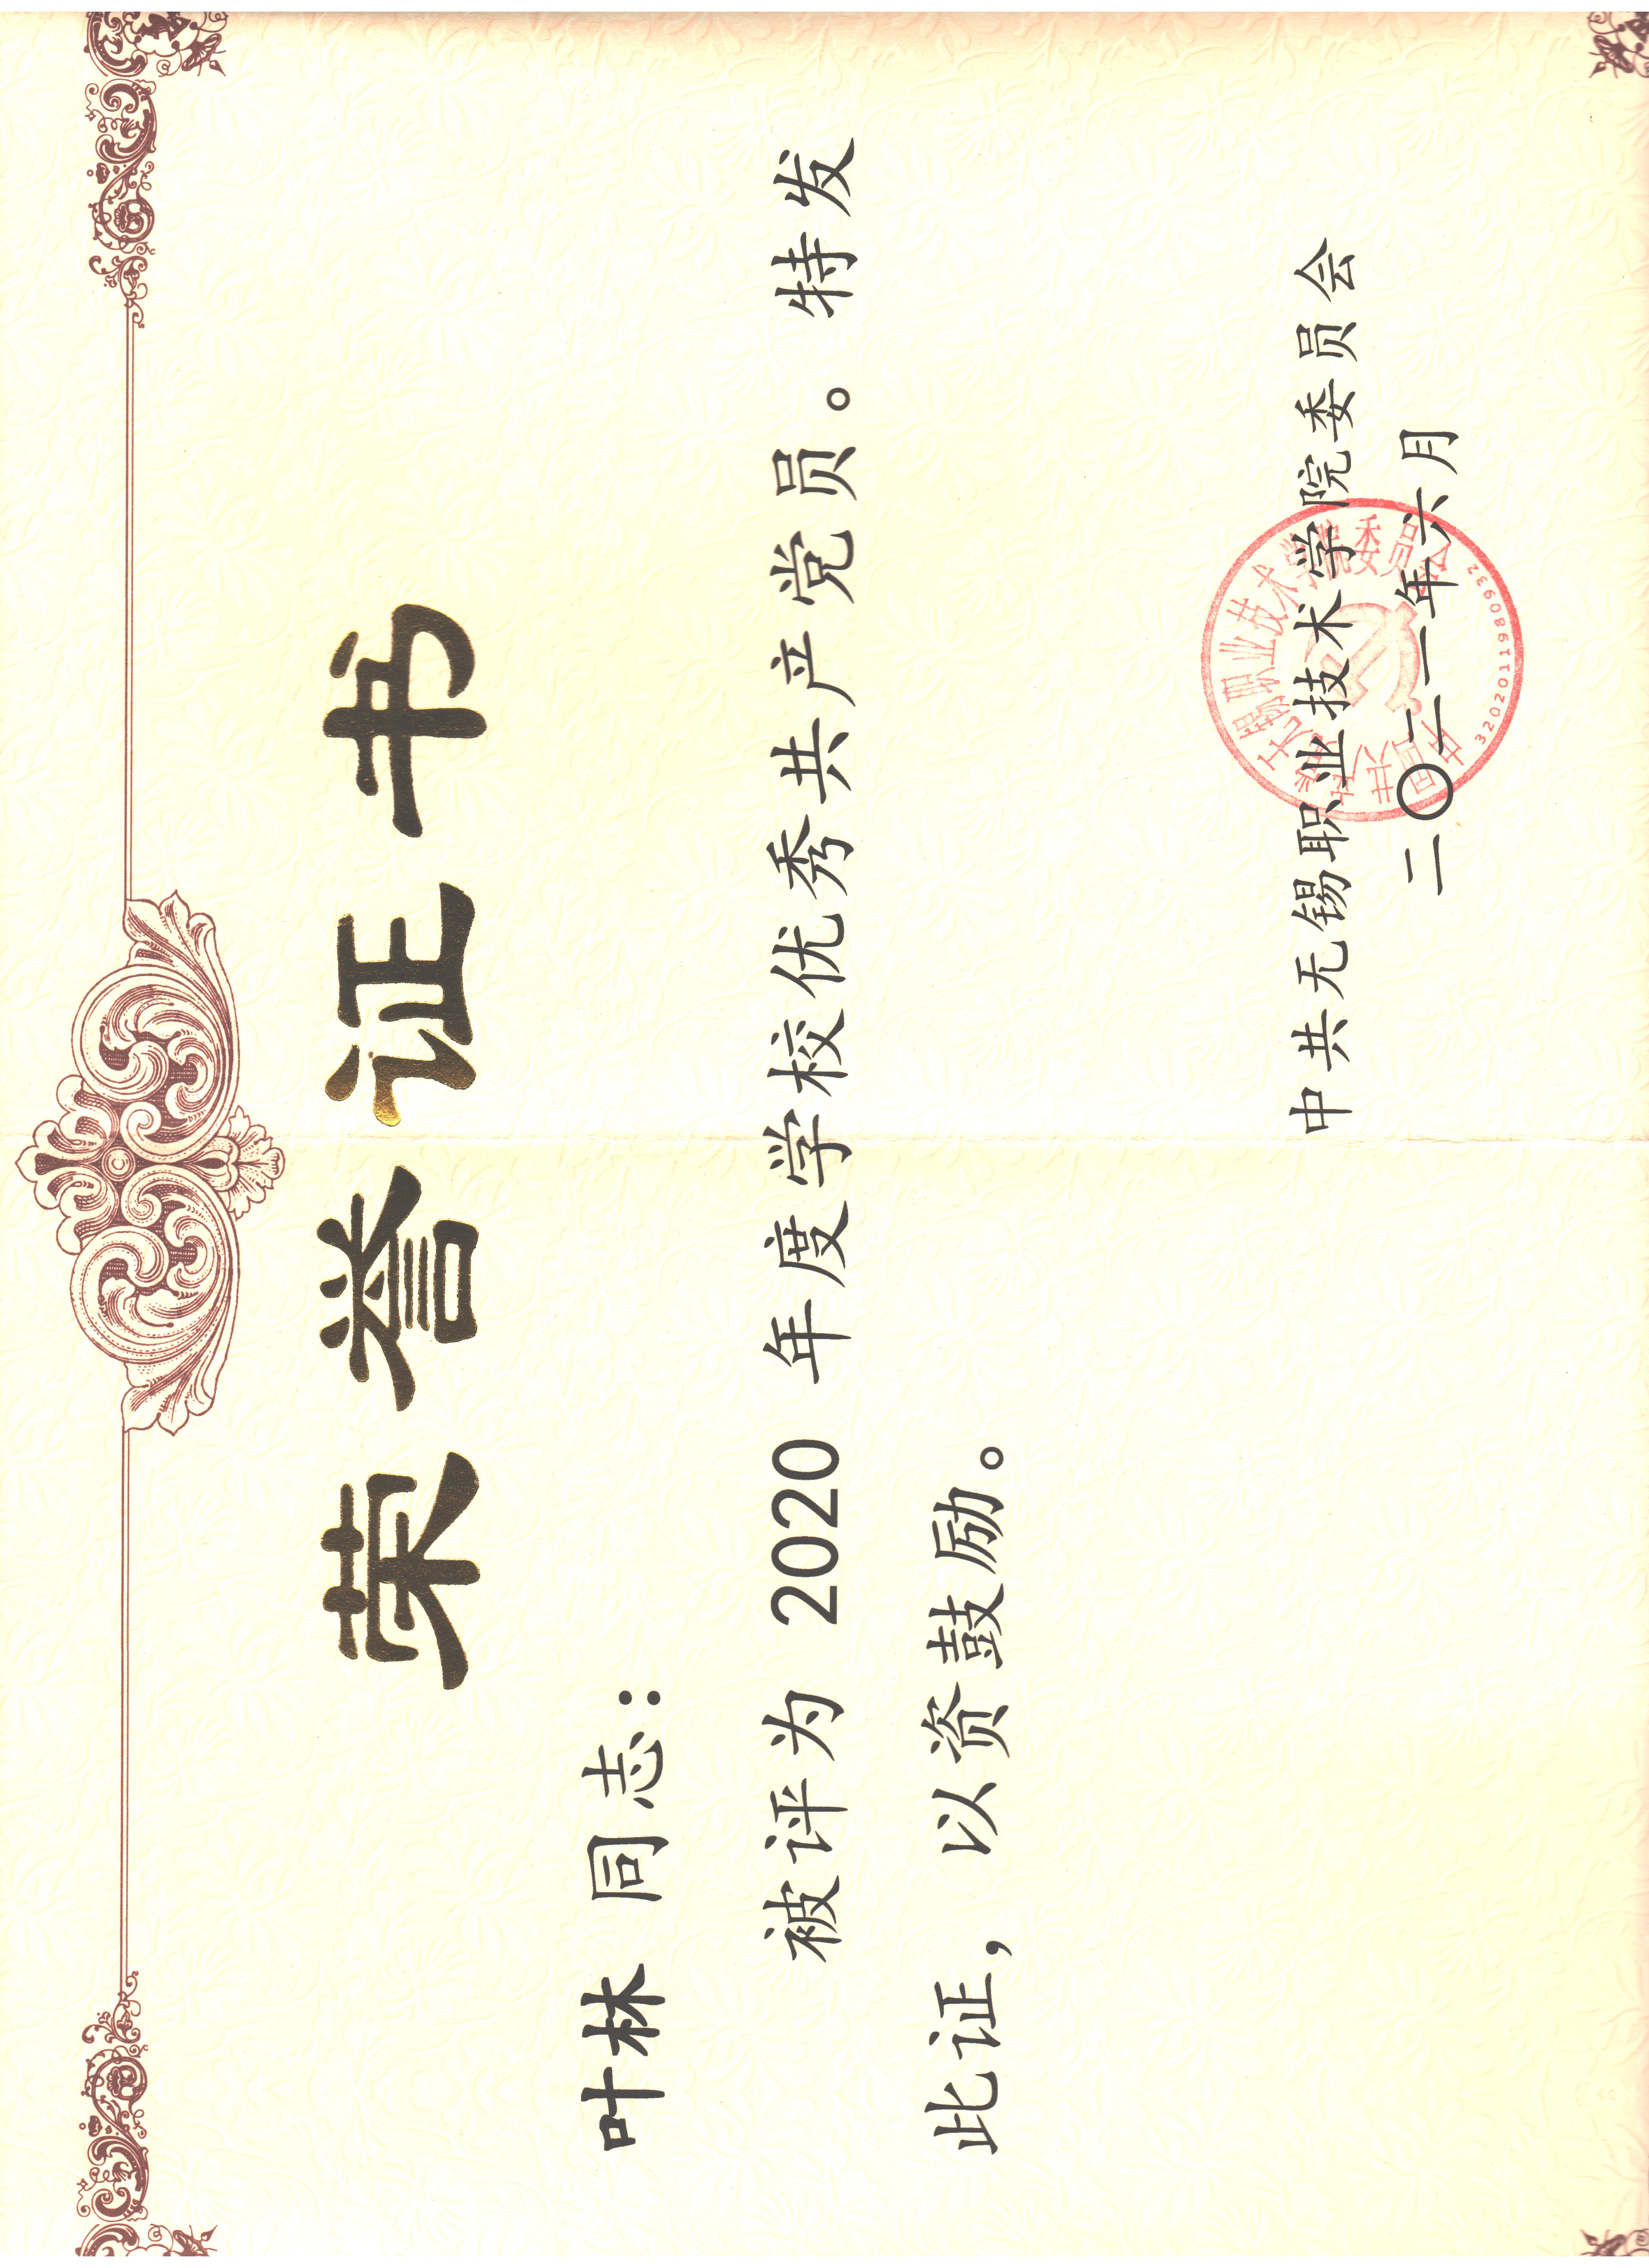 荣誉证书
叶林 同志：
被评为 2020 年度学校优秀共产党员。特发
此证，以资鼓励。
中共无锡职业技术学院委员会
二〇二一年六月
中国共产党无锡职业技术学院委员会
3202011980932